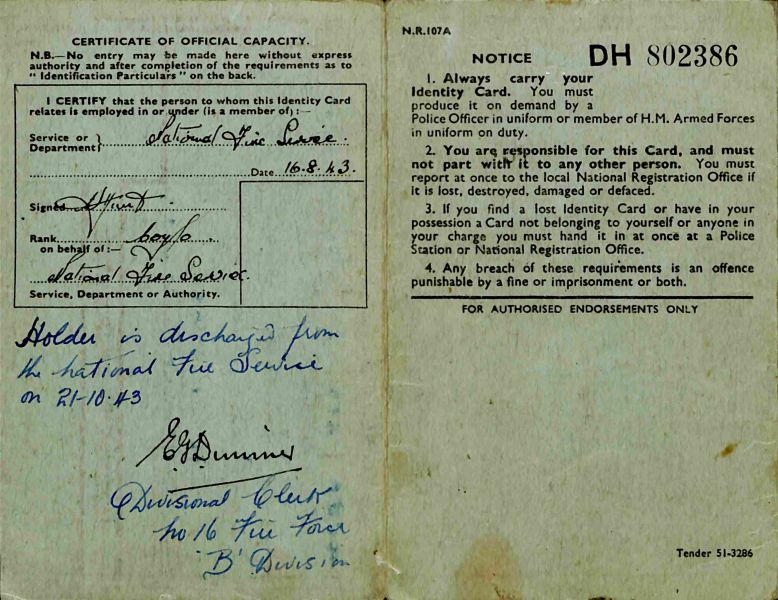 CERTIFICATE OF OFFICIAL CAPACITY.
N.B.—No entry may be made here without express
authority and after completion of the requirements as to
" Identification Particulars " on the back.
I CERTIFY that the person to whom this Identity Card
relates is employed in or under (is a member of) :—
Service or
Department
National Fire Service.
Date 16.8.43.
Signed
Rank
on behalf of :—
National Fire Service.
Service, Department or Authority.
Holder is discharged from
the national Fire Service
on 21-10-43
Divisional Clerk
No 16 Fire Force
'B' Division
N.R.107A
NOTICE DH 802386
1. Always carry your
Identity Card. You must
produce it on demand by a
Police Officer in uniform or member of H.M. Armed Forces
in uniform on duty.
2. You are responsible for this Card, and must
not part with it to any other person. You must
report at once to the local National Registration Office if
it is lost, destroyed, damaged or defaced.
3. If you find a lost Identity Card or have in your
possession a Card not belonging to yourself or anyone in
your charge you must hand it in at once at a Police
Station or National Registration Office.
4. Any breach of these requirements is an offence
punishable by a fine or imprisonment or both.
FOR AUTHORISED ENDORSEMENTS ONLY
Tender 51-3286